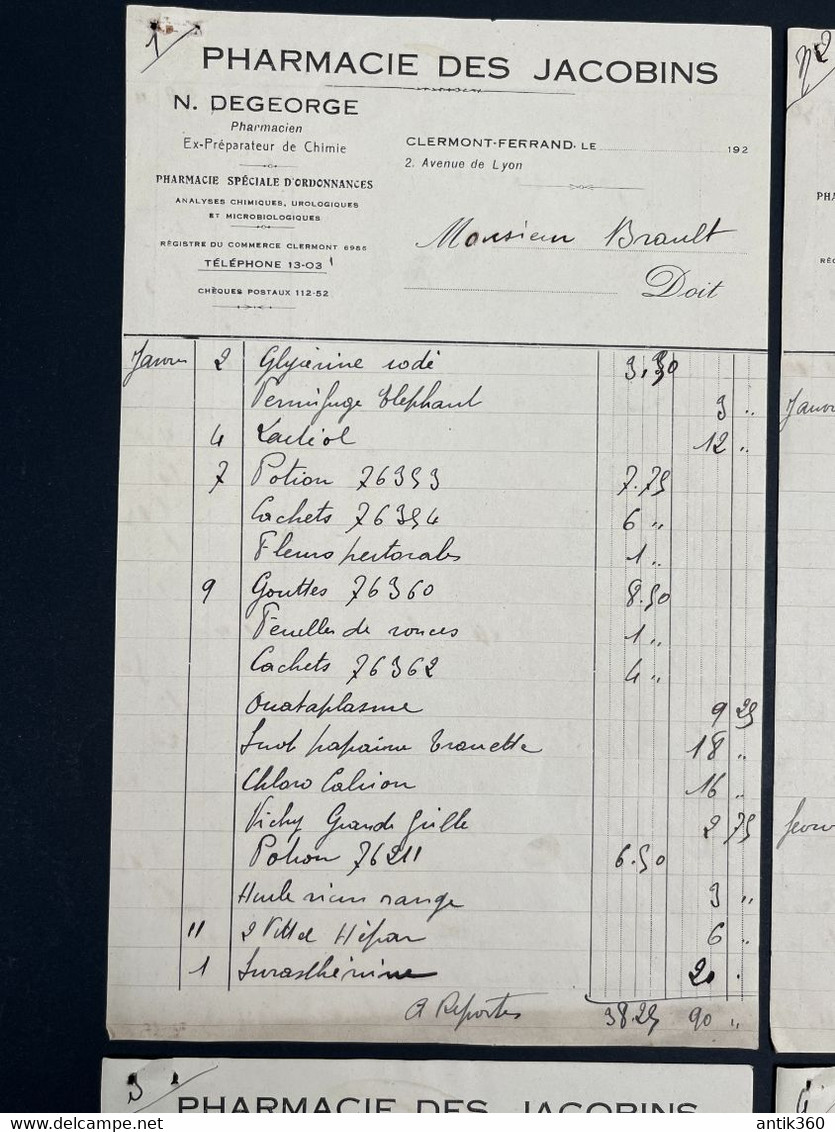 1
PHARMACIE DES JACOBINS
N. DEGEORGE
Pharmacien
Ex-Préparateur de Chimie
PHARMACIE SPÉCIALE D'ORDONNANCES
ANALYSES CHIMIQUES, UROLOGIQUES
ET MICROBIOLOGIQUES
REGISTRE DU COMMERCE CLERMONT 6986
TÉLÉPHONE 13-03
CHÈQUES POSTAUX 112-52
CLERMONT-FERRAND, LE 192
2. Avenue de Lyon
Monsieur Brault
Doit
2 Glycérine iodé 3,50
Vermifuge Elephant 3 "
4 Lactéol 12 "
7 Potion 76353 7.75
Cachets 76354 6 "
Fleurs pectorales 1 "
9 Gouttes 76360 8.50
Feuilles de ronces 1 "
Cachets 76362 4 "
Ouataplasme 9 25
Sirop papaine Trouette 18 "
Chloro Calcion 16 "
Vichy Grande Grille 2 75
Potion 76211 6.50
Huile ricin 3 "
11 2 Vittel Hépar 6 "
1 20
A Reporter 38.25 90 "
n2
PHA
RÉG
3
PHARMACIE DES JACOBINS
www.delcampe.net
antik360